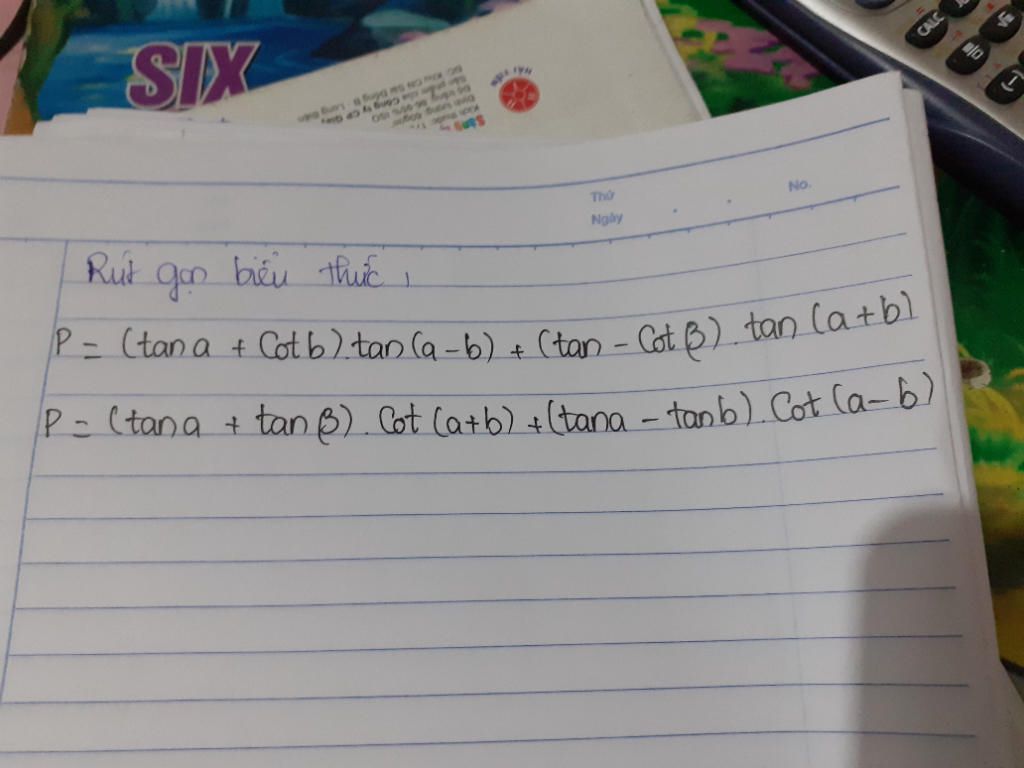 SIX
Hải Tiến
Thứ
No.
Ngày
Rút gọn biểu thức,
P = (tan a + Cot b).tan(a-b) + (tan - Cot β).tan(a+b)
P = (tan a + tan β).Cot(a+b) + (tan a - tan b).Cot(a-b)
CALC